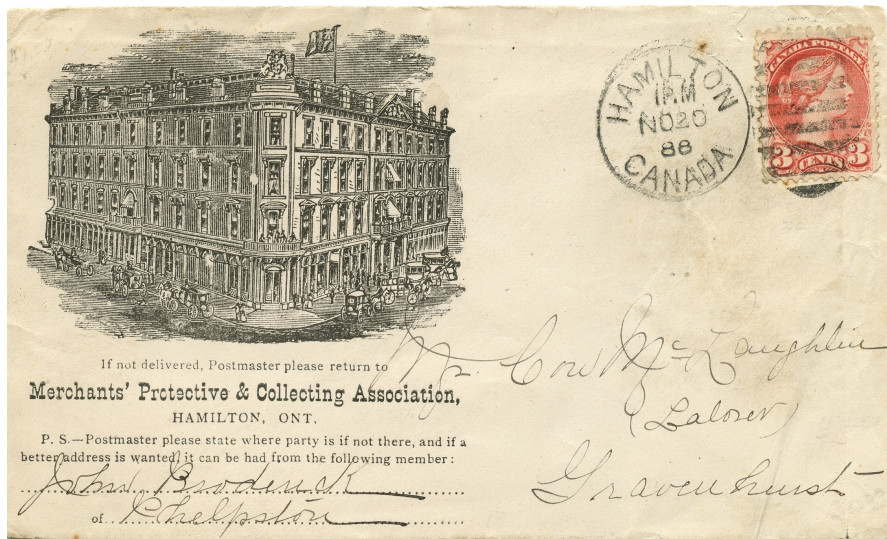 HAMILTON
1 P.M
NO 20
88
CANADA
CANADA POSTAGE
3 CENTS 3
If not delivered, Postmaster please return to
Merchants' Protective & Collecting Association,
HAMILTON, ONT.
P. S.—Postmaster please state where party is if not there, and if a
better address is wanted, it can be had from the following member:
John Broderick
of Phelpston
Mr. Con McLaughlin
(Laborer)
Gravenhurst